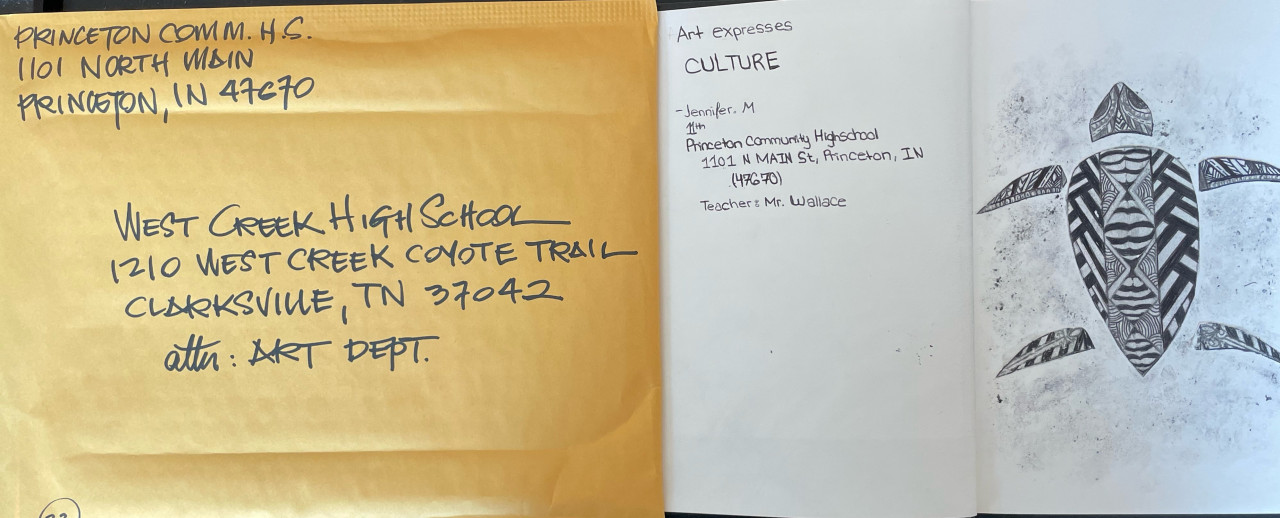 PRINCETON COMM. H.S.
1101 NORTH MAIN
PRINCETON, IN 47670
WEST CREEK HIGH SCHOOL
1210 WEST CREEK COYOTE TRAIL
CLARKSVILLE, TN 37042
attn: ART DEPT.
Art expresses
CULTURE
-Jennifer. M
11th
Princeton Community Highschool
1101 N MAIN St, Princeton, IN
(47670)
Teacher: Mr. Wallace